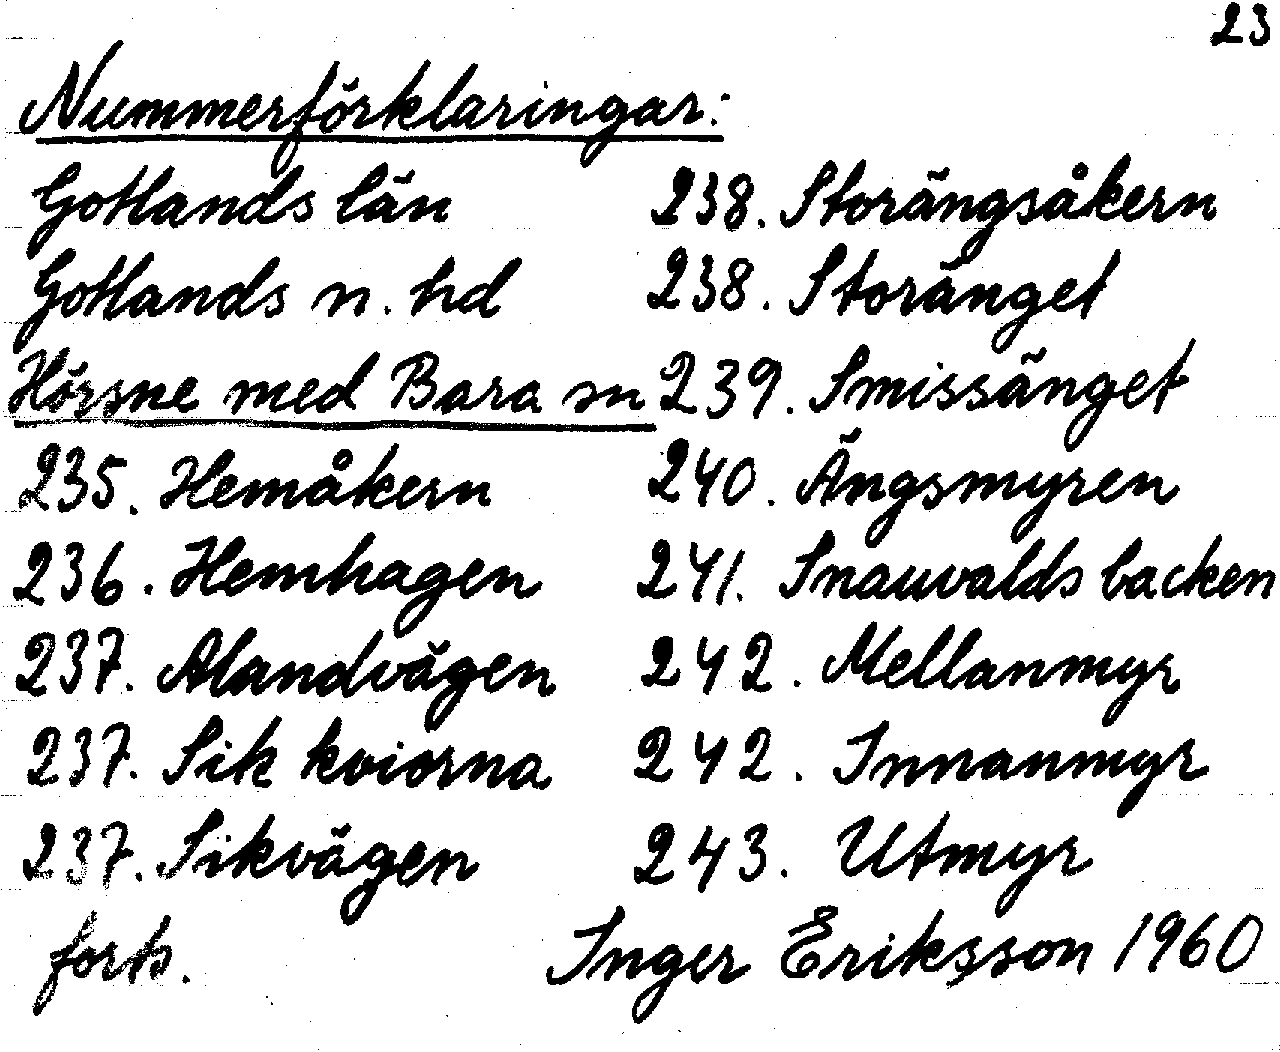 23
Nummerförklaringar:
Gotlands län
Gotlands n. hd
Hörsne med Bara sn
235. Hemåkern
236. Hemhagen
237. Alandvägen
237. Sik kviorna
237. Sikvägen
forts.
238. Storängsåkern
238. Storänget
239. Smissänget
240. Ängsmyren
241. Snauvalds backen
242. Mellanmyr
242. Innanmyr
243. Utmyr
Inger Eriksson 1960